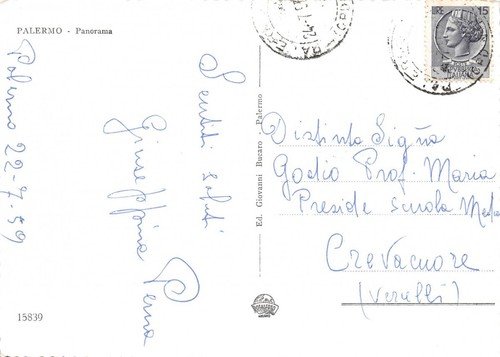 PALERMO - Panorama
Palermo 22-7-59
Sentiti saluti
Giuseppina Perna
Ed. Giovanni Bucaro - Palermo
15
Distinta Sigña
Godio Prof. Maria
Preside Scuola Media
Crevacuore
(Vercelli)
15839